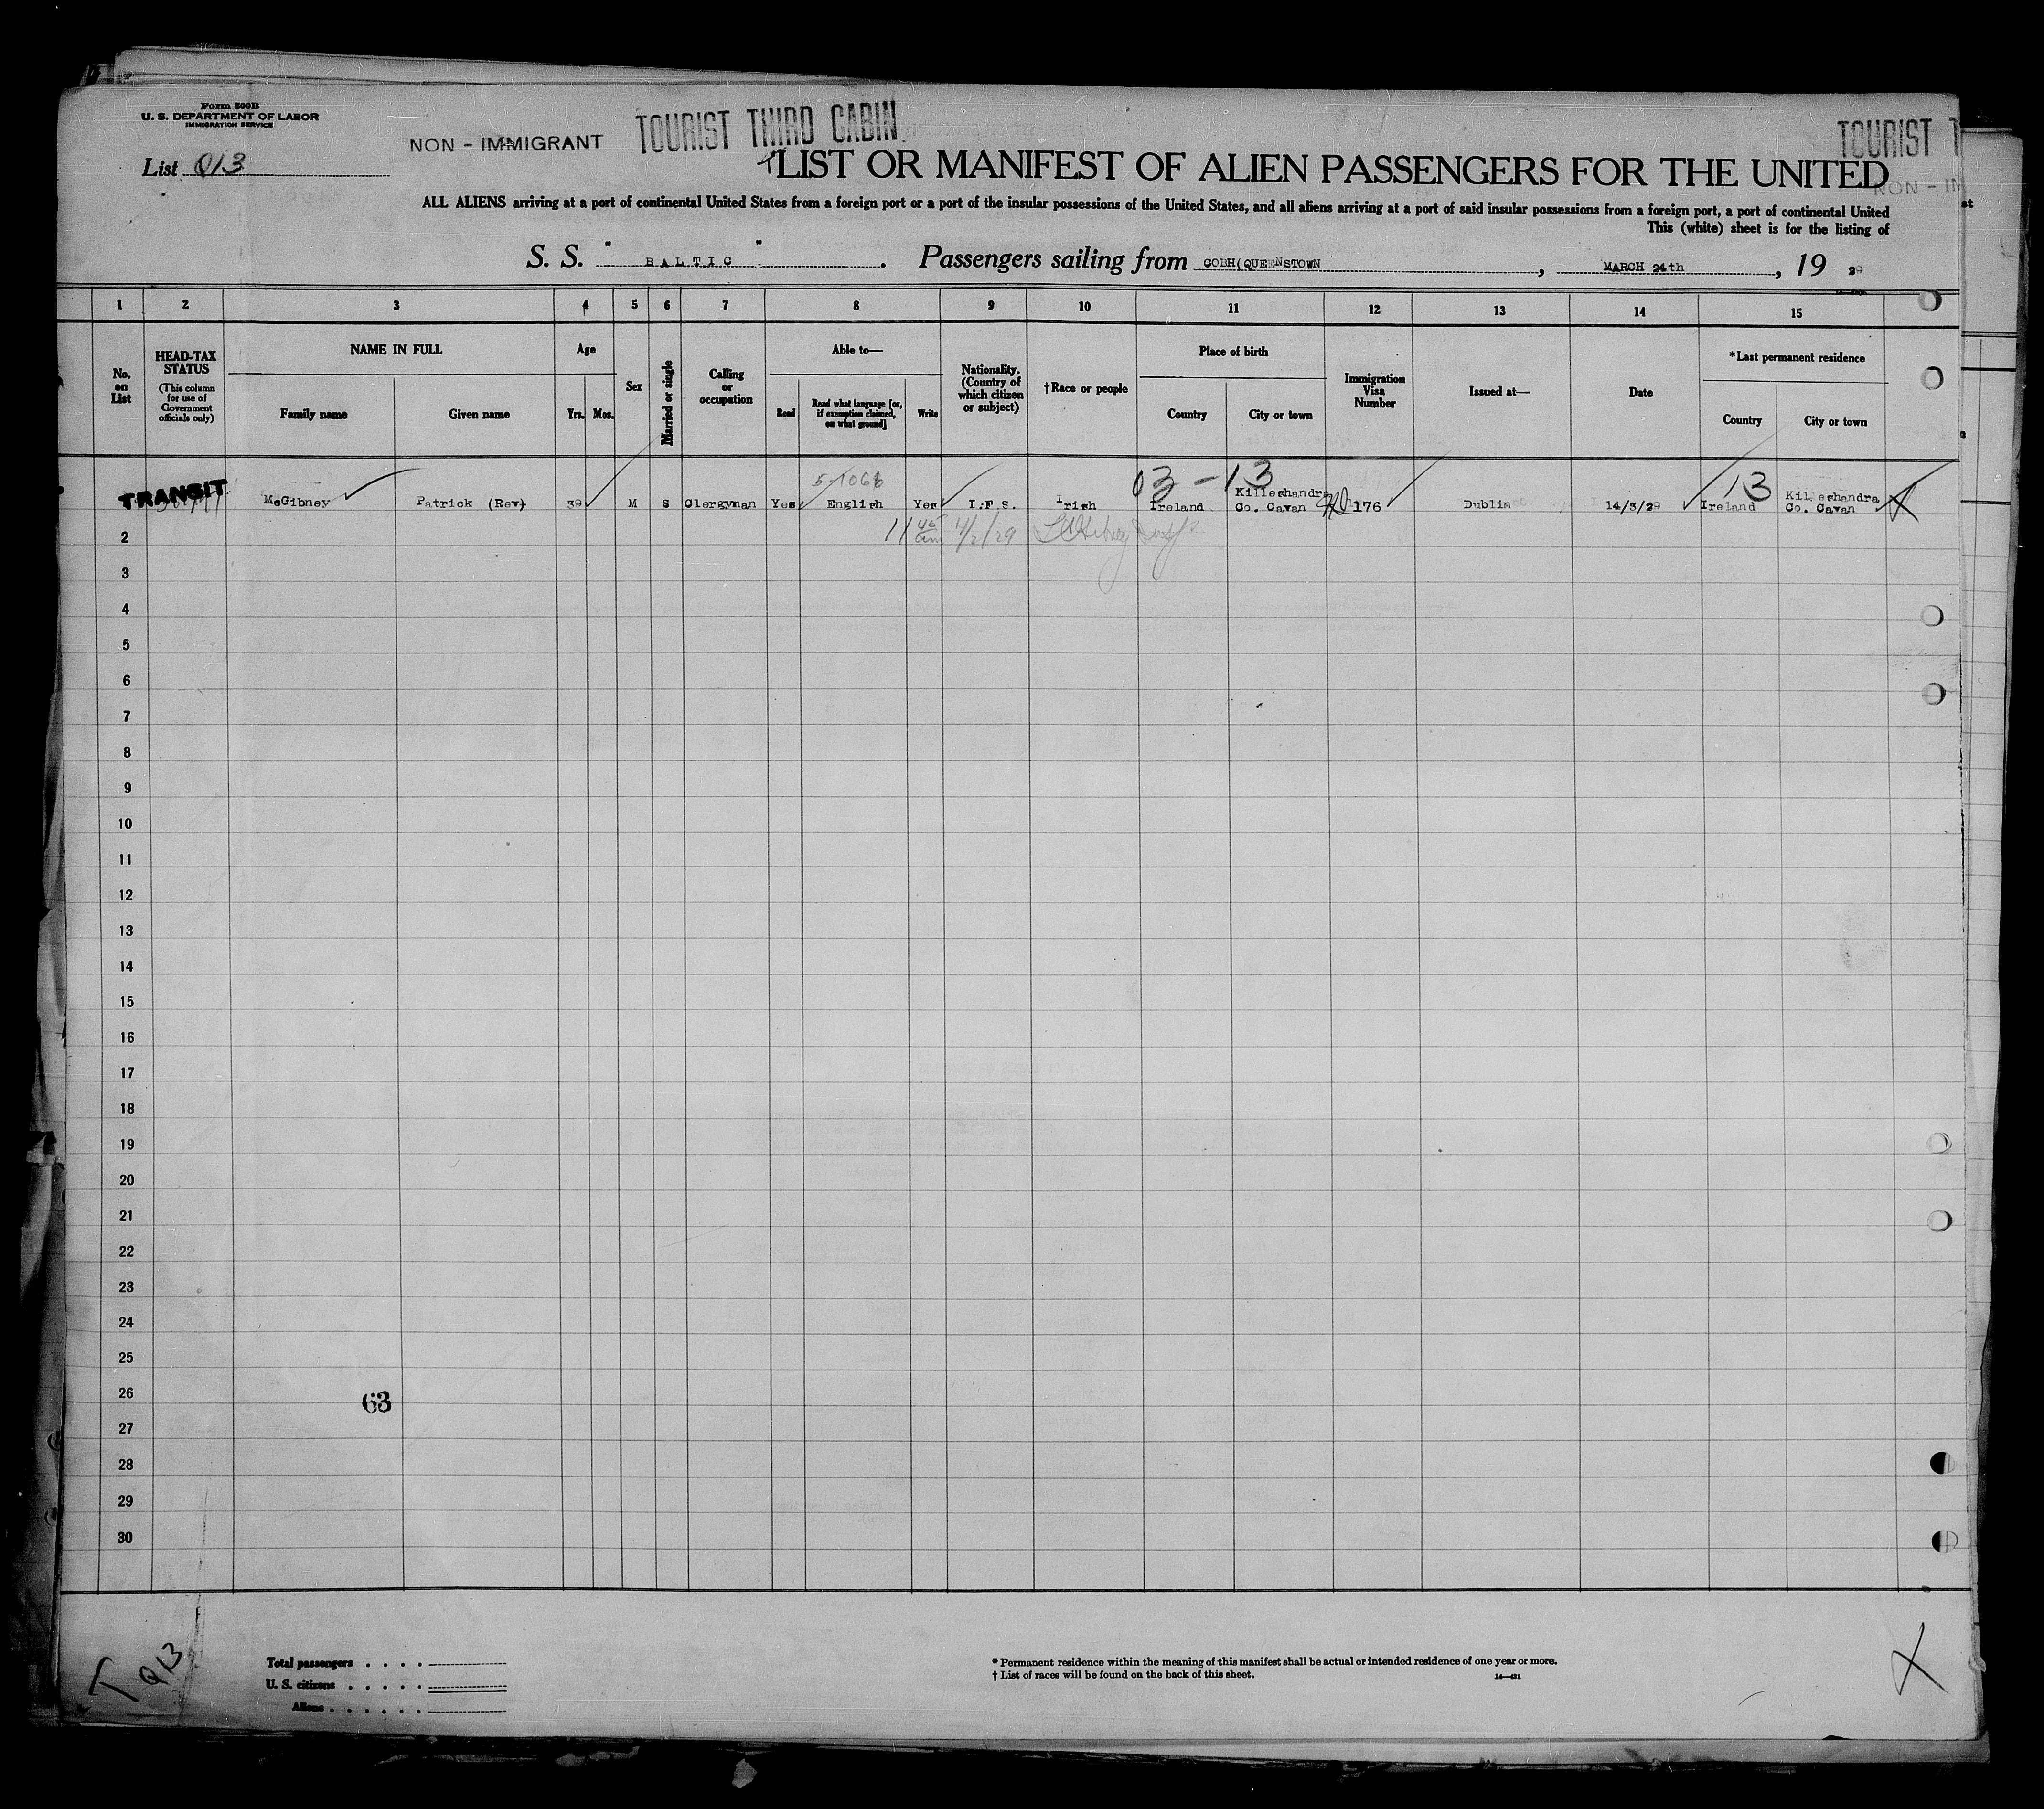 Form 500B
U. S. DEPARTMENT OF LABOR
IMMIGRATION SERVICE
NON - IMMIGRANT
TOURIST THIRD CABIN
TOURIST T
List Q13
LIST OR MANIFEST OF ALIEN PASSENGERS FOR THE UNITED
NON - IM
ALL ALIENS arriving at a port of continental United States from a foreign port or a port of the insular possessions of the United States, and all aliens arriving at a port of said insular possessions from a foreign port, a port of continental United
st
This (white) sheet is for the listing of
S. S. " BALTIC ". Passengers sailing from COBH(QUEENSTOWN , MARCH 24th , 19 29
1 2 3 4 5 6 7 8 9 10 11 12 13 14 15
No. on List
HEAD-TAX STATUS
(This column for use of Government officials only)
NAME IN FULL
Family name Given name
Age
Yrs. Mos.
Sex
Married or single
Calling or occupation
Able to—
Read
Read what language [or, if exemption claimed, on what ground]
Write
Nationality. (Country of which citizen or subject)
†Race or people
Place of birth
Country City or town
Immigration Visa Number
Issued at—
Date
*Last permanent residence
Country City or town
5-1066
03 - 13
13
TRANSIT McGibney Patrick (Rev) 39 M S Clergyman Yes English Yes I.F.S. Irish Ireland Killeshandra Co. Cavan 176 Dublin 14/3/29 Ireland Killeshandra Co. Cavan
11 45 am 4/2/29
2
3
4
5
6
7
8
9
10
11
12
13
14
15
16
17
18
19
20
21
22
23
24
25
26
63
27
28
29
30
T Q13
X
Total passengers . . . .
U. S. citizens . . . . .
Aliens . . . . . .
* Permanent residence within the meaning of this manifest shall be actual or intended residence of one year or more.
† List of races will be found on the back of this sheet.